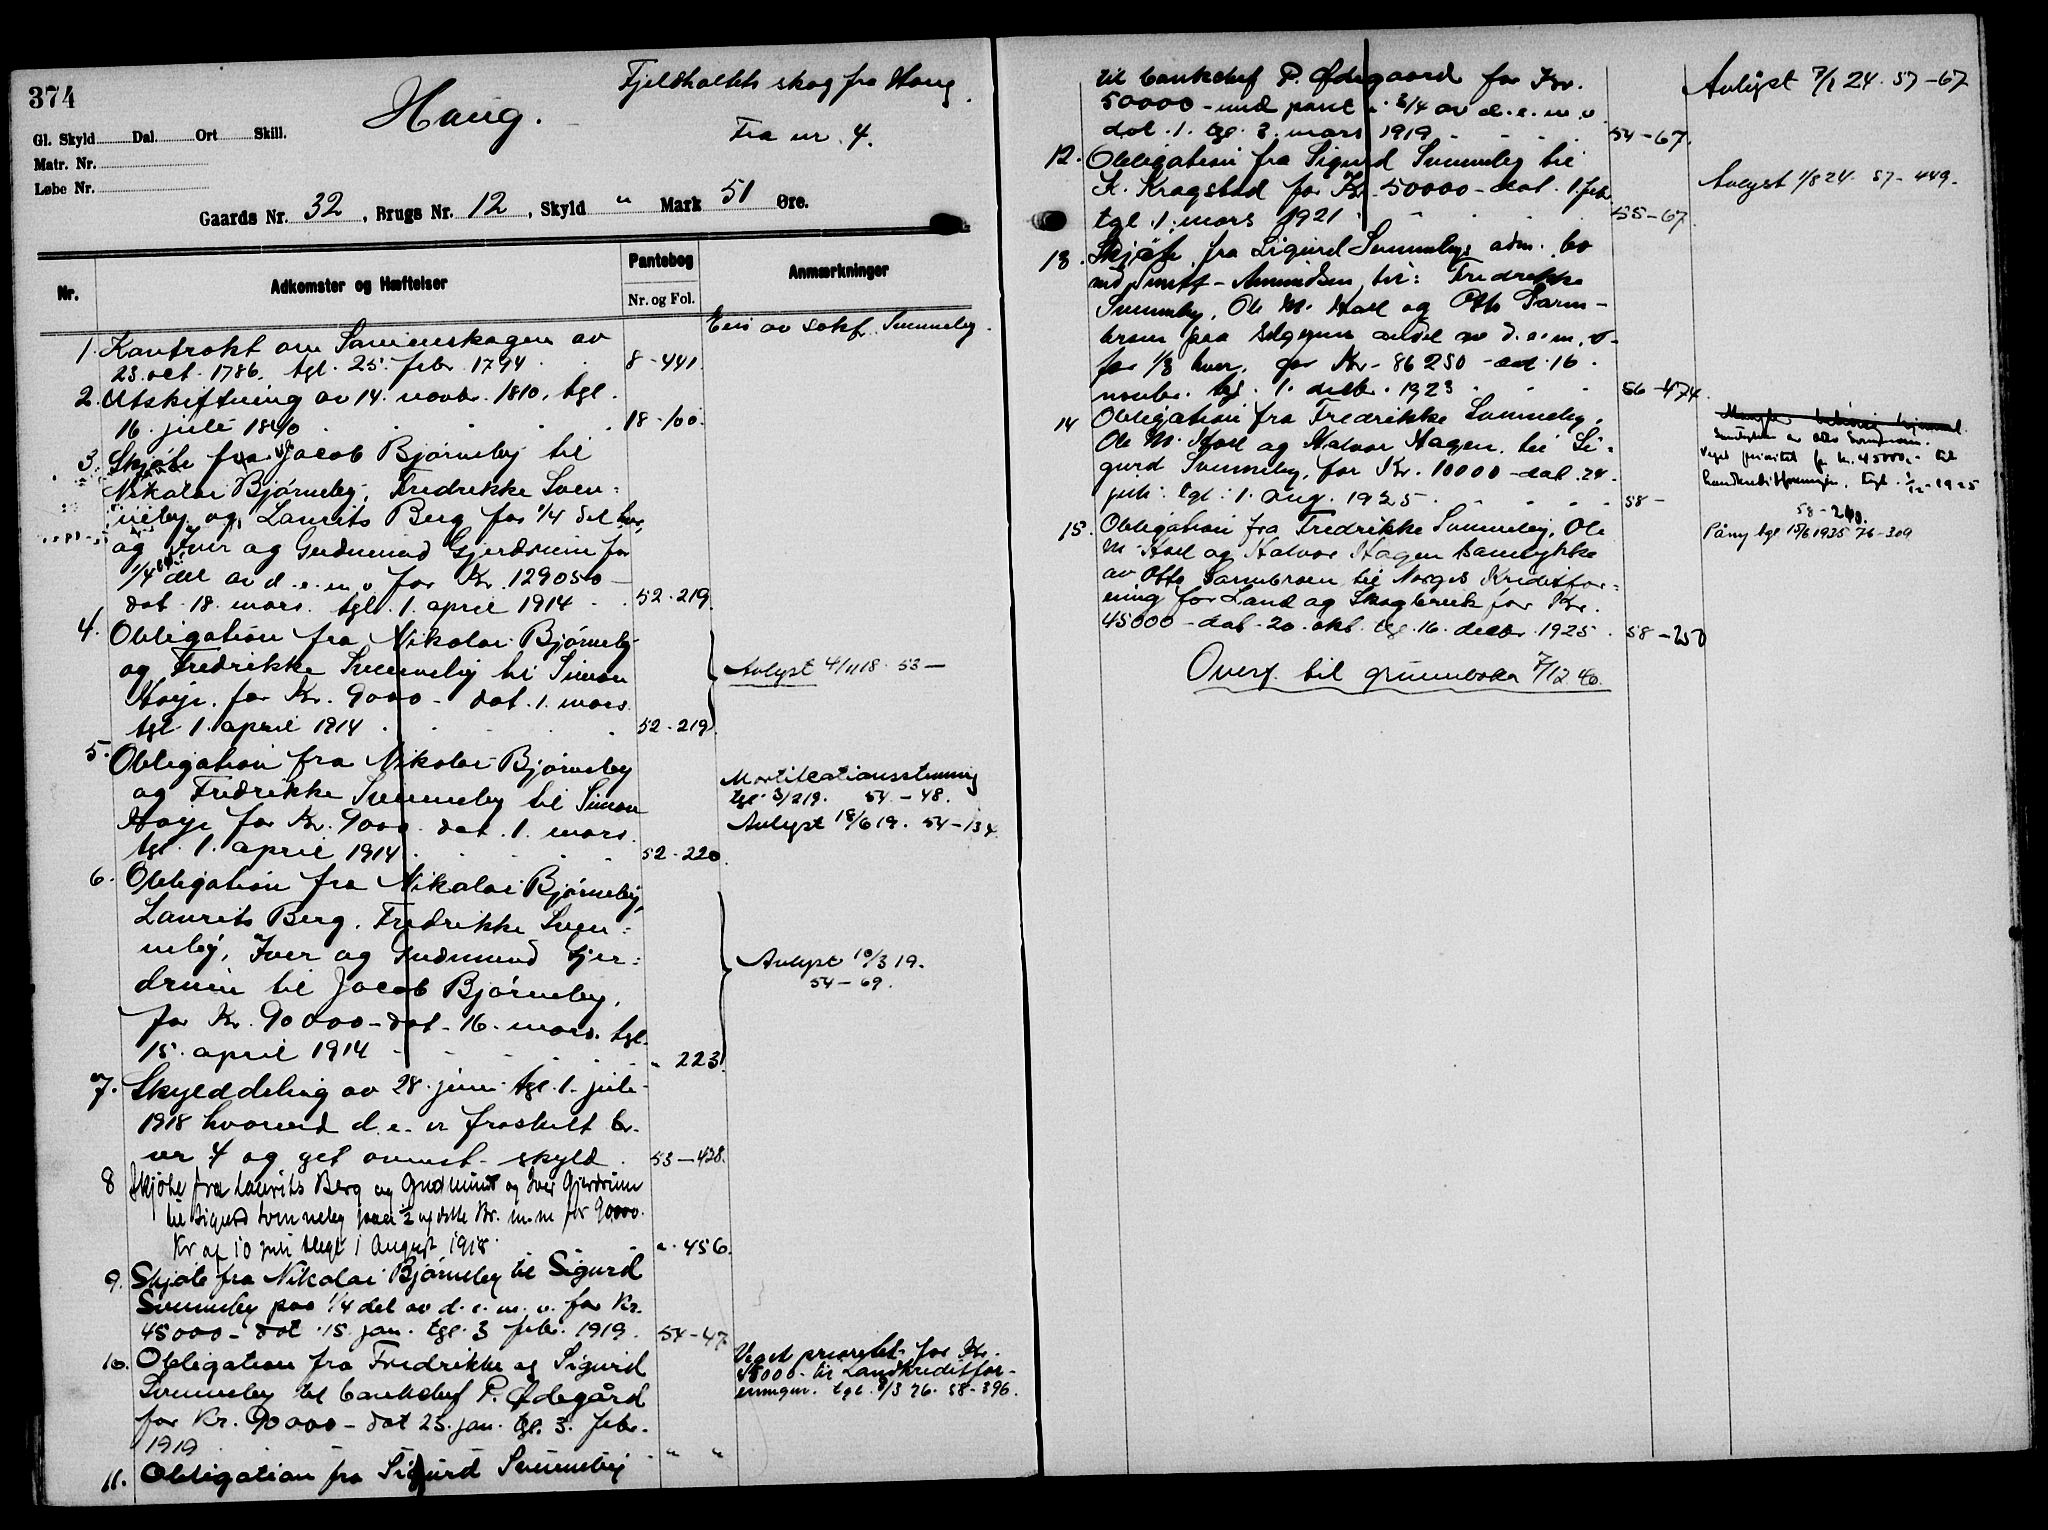 374
Haug.
Fjeldholtets skog fra Haug.
Fra nr. 4.
Gl. Skyld Dal. Ort Skill.
Matr. Nr.
Løbe Nr.
Gaards Nr. 32, Brugs Nr. 12, Skyld " Mark 51 Øre.
Nr. Adkomster og Hæftelser Pantebog Anmærkninger
Nr. og Fol.
Eies av sakf. Svenneby.
1. Kontrakt om Sameieskogen av
23. oct. 1786. tgl. 25. febr. 1794 . 8-441
2. Utskiftning av 14. novbr. 1810, tgl.
16. juli 1840 . . . . . 18-100.
3. Skjøte fra Jacob Bjørneby til
Nikolai Bjørneby, Fredrikke Sven=
neby og Laurits Berg for 1/4 del hver
og Iver og Gudmund Gjerdrum for
1/4 del av d. e. m. v. for Kr. 129050 -
dat. 18. mars. tgl. 1. april 1914 . . 52-219.
4. Obligation fra Nikolai Bjørneby
og Fredrikke Svenneby til Simon
Høye. for Kr. 9000 - dat. 1. mars.
tgl. 1. april 1914 . . . . 52-219
Avlyst 4/11 18. 53 —
5. Obligation fra Nikolai Bjørneby
og Fredrikke Svenneby til Simon
Høye for Kr. 9000. dat. 1. mars.
tgl. 1. april 1914 . . . . 52-220.
Mortifications
tgl. 3/2 19. 54 - 48.
Avlyst 18/6 19. 54-134.
6. Obligation fra Nikolai Bjørneby,
Laurits Berg. Fredrikke Sven=
neby, Iver og Gudmund Gjer=
drum til Jacob Bjørneby,
for Kr. 90000 - dat. 16. mars. tgl.
15. april 1914 - . . . . " 223.
Avlyst 10/3 19.
54-69.
7. Skylddeling av 28. juni tgl. 1. juli
1918 hvorved d. e. er fraskilt br.
nr. 4 og git ovenst. skyld. 53-428.
8 Skjøte fra Laurits Berg og Gudmund og Iver Gjerdrum
til Sigurd Svenneby paa 1/2 af dette Br. m.m for 90000.
Kr af 10 juli tlegt 1 August 1918. " 456.
9. Skjøte fra Nikolai Bjørneby til Sigurd
Svenneby paa 1/4 del av d. e. m. v. for Kr.
45000 - dat. 15. jan. tgl. 3 febr. 1919. 54-47
10. Obligation fra Fredrikke og Sigurd
Svenneby til bankchef P. Ødegård
for Kr. 90000 - dat 25. jan. tgl. 3. febr.
1919 . . . . " "
Veget prioritet for Kr.
45000 - til Landkreditfor-
eningen. tgl. 1/3 26. 58-396.
11. Obligation fra Sigurd Svenneby
til bankchef P. Ødegaard for Kr.
50000 - med pant i 3/4 av d. e. m. v
dat. 1. tgl. 3. mars 1919 . . . . 54-67.
Avlyst 7/1 24. 57-67
12. Obligation fra Sigurd Svenneby til
K. Kragstad for Kr. 50000 - dat. 1. feb.
tgl. 1. mars 1921 . . . . 55-67
Avlyst 1/8 24. 57-449.
13. Skjøte fra Sigurd Svennebys adm. bo
ved Amundsen, til: Fredrikke
Svenneby, Ole M. Hoel og Otto Sørm-
broen paa selgerens andel av d. e. m. v.
for 1/3 hver, for Kr. 86250 - dat. 16.
novbr. tgl. 1. decbr. 1923 . . . . 56-474.
14 Obligation fra Fredrikke Svenneby,
Ole M. Hoel og Halvor Hagen til Si=
gurd Svenneby, for Kr. 10000 - dat. 24.
juli. tgl. 1. aug. 1925 . . . . 58 -
Mangler
Samtykke av Otto
Veget prioritet for kr. 45000,- til
Landkreditforeningen, tgl. 1925
58-
Påny tgl 15/6 1935 76-309
15. Obligation fra Fredrikke Svenneby, Ole
M. Hoel og Halvor Hagen samtykke
av Otto Sørmbroen til Norges Kreditfor=
ening for Land og Skogbruk for Kr.
45000 - dat. 20. okt. tgl. 16. decbr. 1925 . 58-250
Overf. til grunnboka 7/12 40.